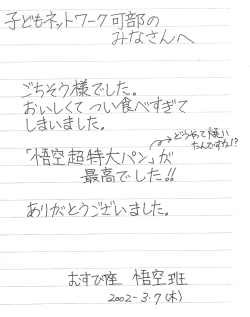 子どもネットワーク可部の
みなさんへ
ごちそう様でした。
おいしくてつい食べすぎて
しまいました。
→どうやって焼い
たんですか!?
「悟空超特大パン」が
最高でした!!
ありがとうございました。
むすび座 悟空班
2002-3.7(木)